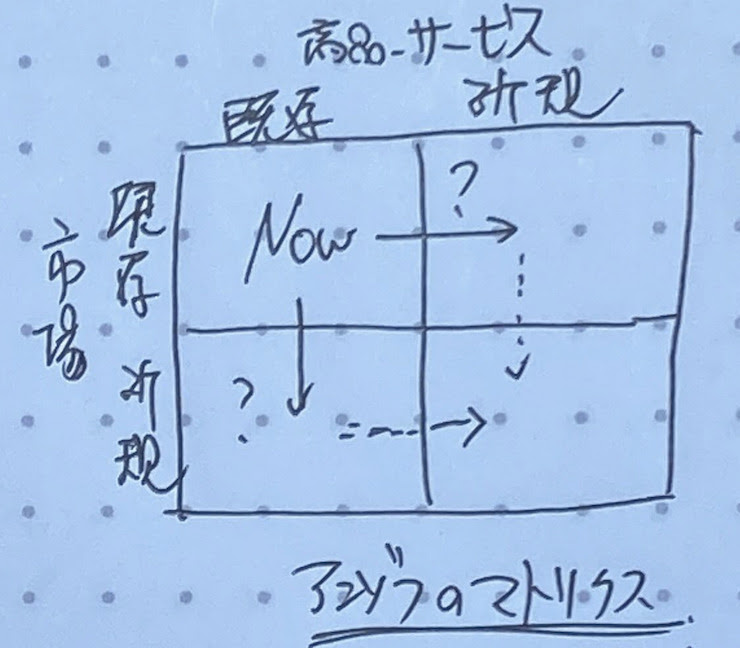 商品・サービス
既存 新規
市場
既存
新規
Now
?
?
アンゾフのマトリクス